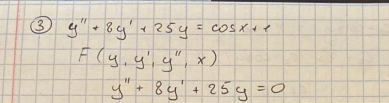 ③ y'' + 8y' + 25y = cosx + 1
F(y, y', y'', x)
y'' + 8y' + 25y = 0